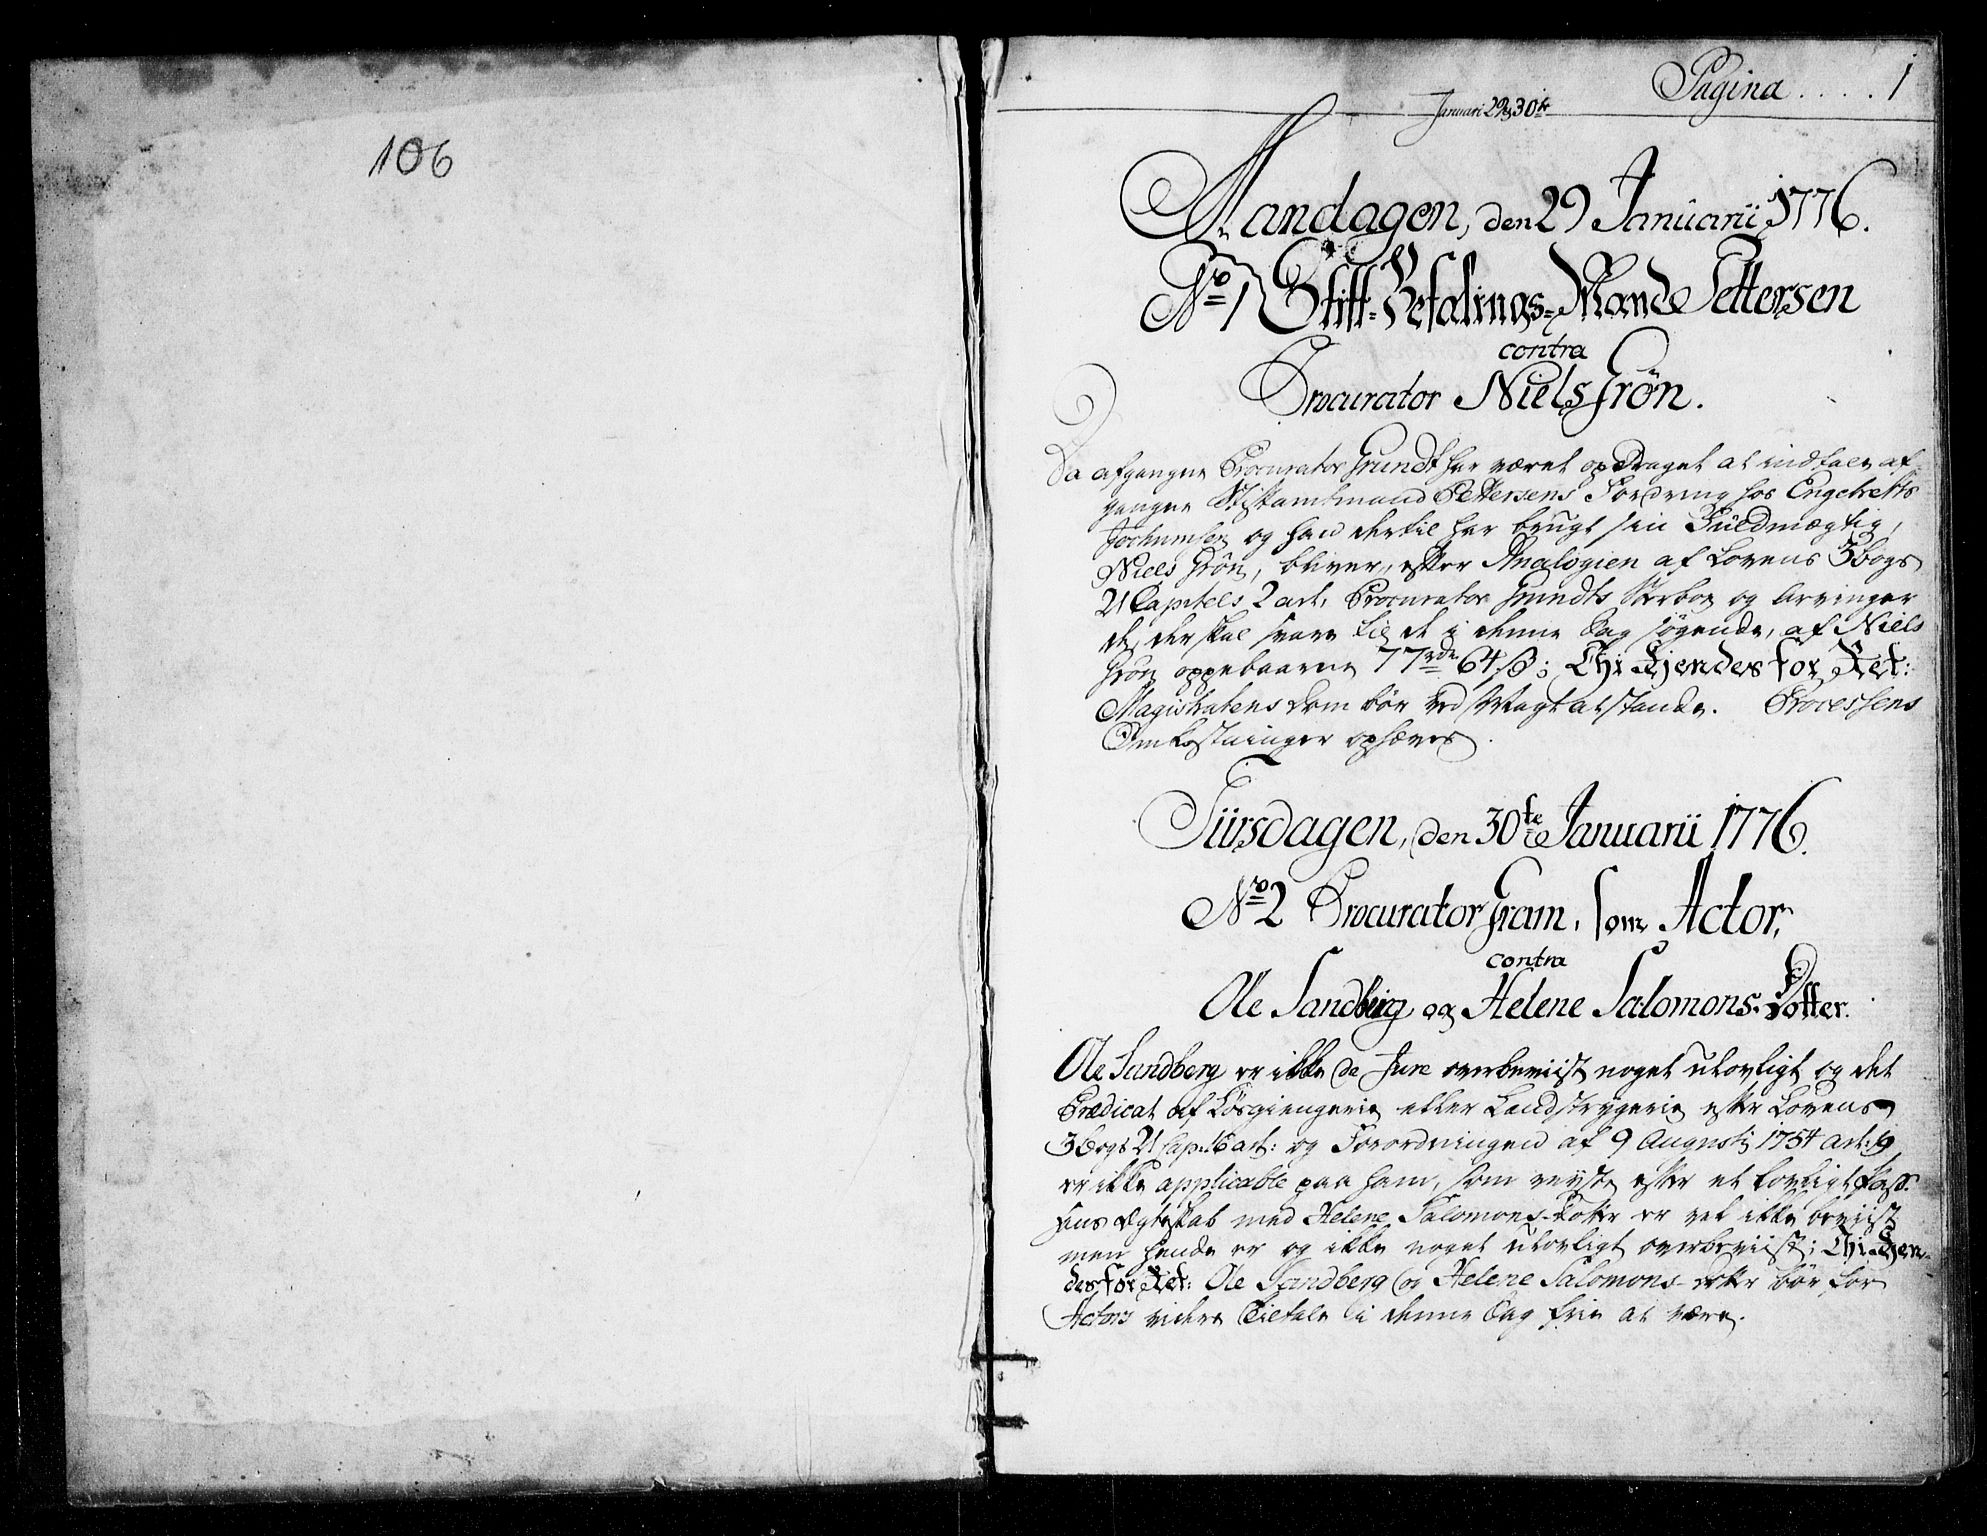 106
Pagina . . . . 1
Januari 29 & 30te
Mandagen, den 29 Januarii 1776.
No 1 Stift-Befalings-Mand Pettersen
contra
Procurator Niels Grøn.
Da afgangne Procurator Grundt har været opdraget at indtale af-
gangne Stiftamtmand Pettersens Fordring hos Engebrett
Jochumsen og han dertil har brugt sin Fuldmægtig,
Niels Grøn, bliver, efter Analogien af Lovens 3 bogs
21 Capitels 2 art, Procurator Grundts Sterboe og Arvinger
de, der skal svare til de i denne Sag søgende, af Niels
Grøn oppebaarne 77 rdr 64 s; Thi Kjendes for Ret:
Magistratens Dom bør ved Magt at stande. Processens
Omkostninger ophæves.
Tiirsdagen, den 30te Januarii 1776.
No 2 Procurator Gram, som Actor,
contra
Ole Sandberg og Helene Salomons-Dotter.
Ole Sandberg er ikke de Jure overbeviist noget ulovligt og det
Prædicat af Løsgiengerie eller Landstrygerie efter Lovens
3 bogs 21 Cap: 6 art: og Forordningen af 9 Augusti 1754 art: 9
er ikke applicable paa ham, som reyste efter et lovligt Pass.
Hans Ægteskab med Helene Salomons-Dotter er vel ikke beviist
men hende er og ikke noget ulovligt overbeviist; Thi Kjen-
des for Ret: Ole Sandberg og Helene Salomons-dotter bør for
Actors videre Tiltale i denne Sag frie at være.